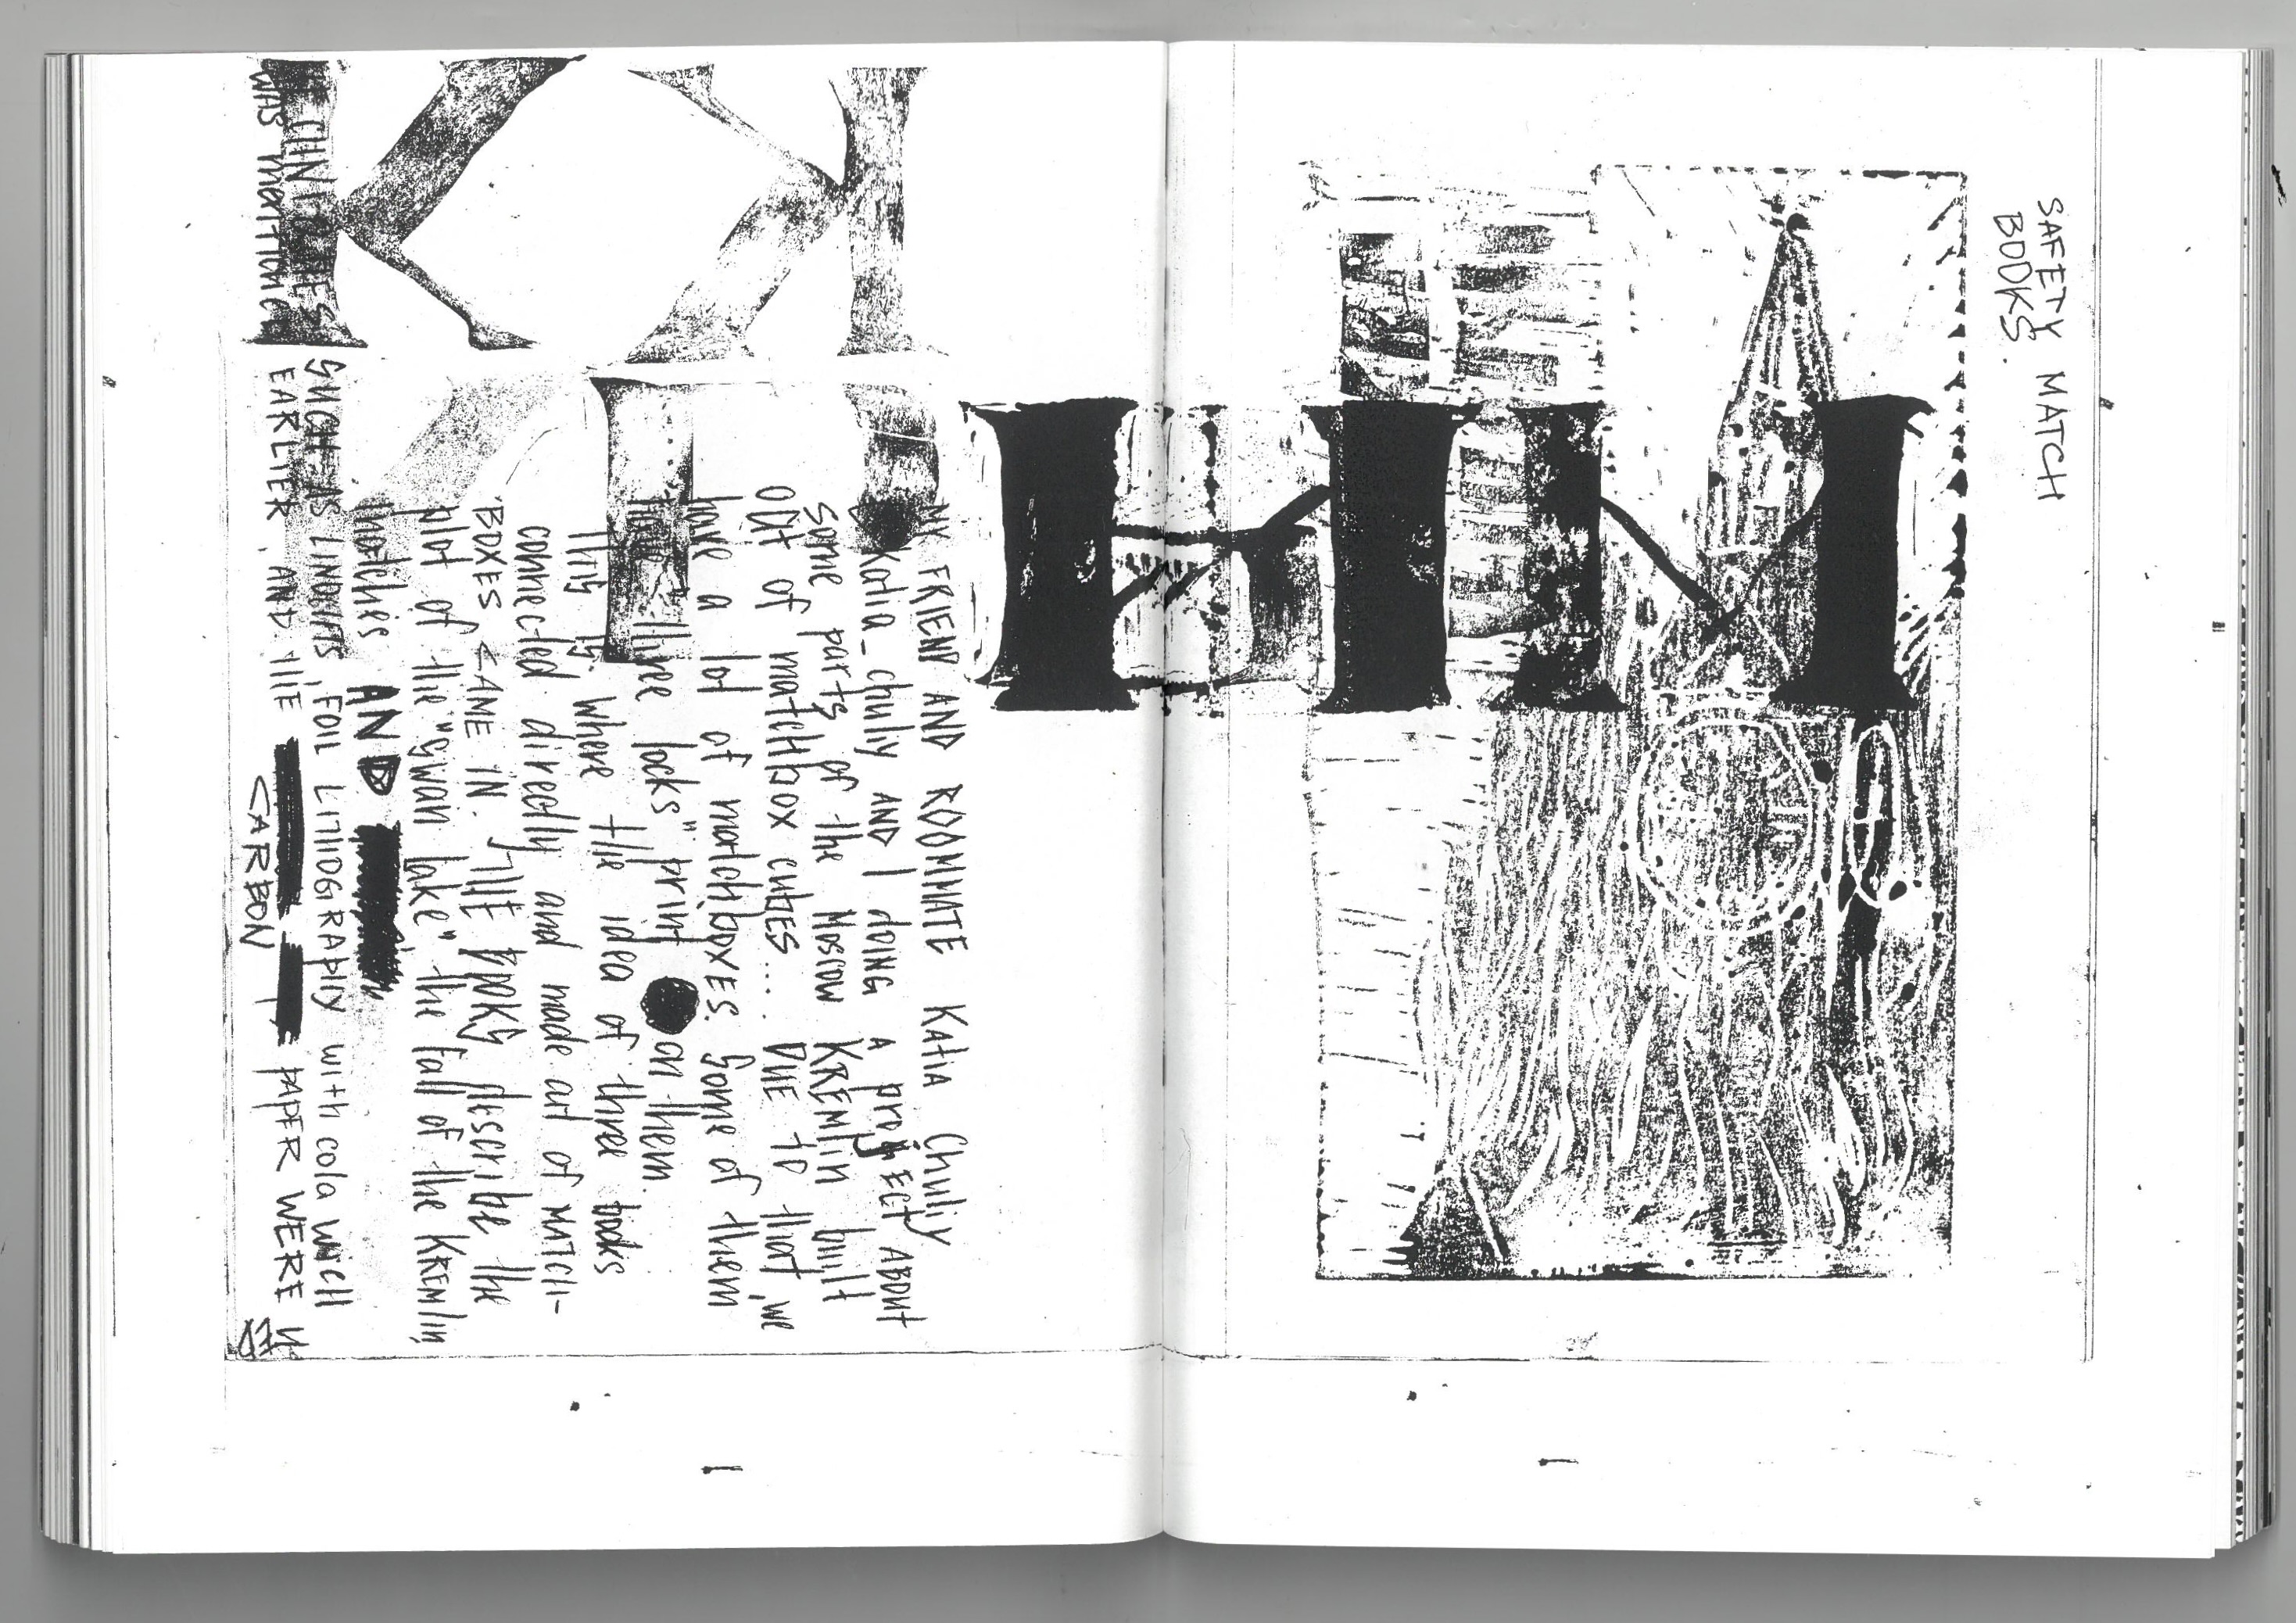 SAFETY MATCH
BOOKS.
MY FRIEND AND ROOMMATE KATIA Chuliy
Katia_chuliy AND I doING A projECT ABOUT
some parts of the Moscow KREMlin built
OUT of matchbox cubes.... DUE to that, we
have a lot of matchboxes. Some of them
have "three locks" print on them.
This is where the idea of three books
connected directly and made out of MATCH-
BOXES CAME IN. THE books describe the
plot of the "Swan lake" the fall of the KREMlin
matches AND
TECHNIQUES SUCH AS LINOCUTS, FOIL LITHOGRAPHY with cola wich
WAS MENTIONED EARLIER, AND THE PAPER WERE USED
CARBON